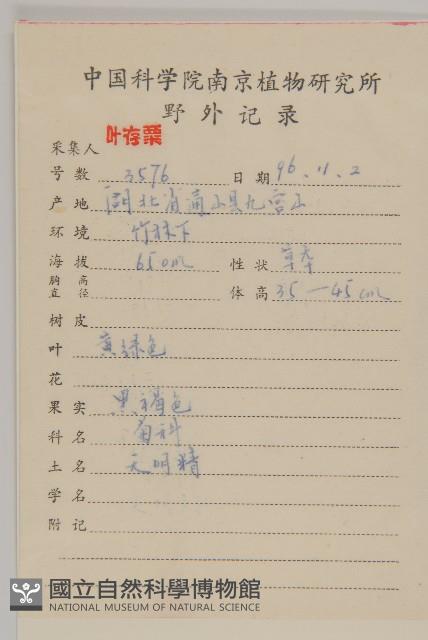 中国科学院南京植物研究所
野外记录
采集人 叶存粟
号数 3576 日期 96.11.2
产地 湖北省通山县九宫山
环境 竹林下
海拔 650m 性状 草本
胸高直径 体高 35—45cm
树皮
叶 黄绿色
花
果实 黑褐色
科名 菊科
土名 天明精
学名
附记
國立自然科學博物館
NATIONAL MUSEUM OF NATURAL SCIENCE